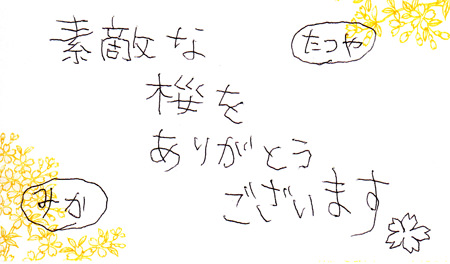 素敵な
たつや
桜を
ありがとう
ございます
みか